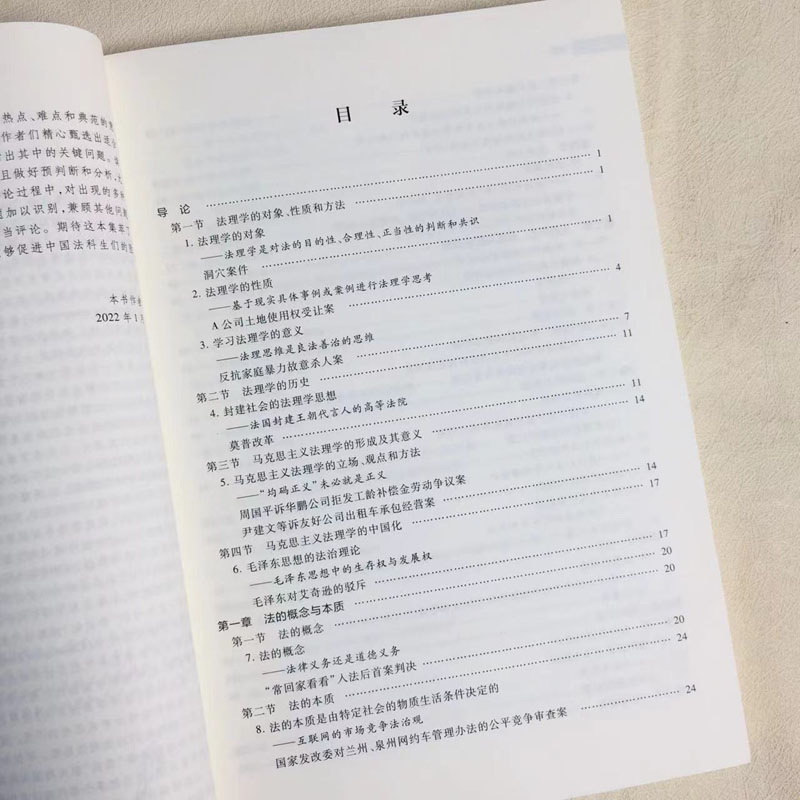 热点、难点和典范的
作者们精心甄选出
出其中的关键问题。
且做好预判断和分析,
论过程中,对出现的多
加以识别,兼顾其他问
当评论。期待这本集萃
够促进中国法科生们的
本书作
2022年1
目 录
导 论 1
第一节 法理学的对象、性质和方法 1
1. 法理学的对象
——法理学是对法的目的性、合理性、正当性的判断和共识
洞穴案件 1
2. 法理学的性质
——基于现实具体事例或案例进行法理学思考
A公司土地使用权受让案 4
3. 学习法理学的意义
——法理思维是良法善治的思维
反抗家庭暴力故意杀人案 7
第二节 法理学的历史 11
4. 封建社会的法理学思想
——法国封建王朝代言人的高等法院
莫普改革 11
第三节 马克思主义法理学的形成及其意义 14
5. 马克思主义法理学的立场、观点和方法
——“均码正义”未必就是正义
周国平诉华鹏公司拒发工龄补偿金劳动争议案
尹建文等诉友好公司出租车承包经营案 14
第四节 马克思主义法理学的中国化 17
6. 毛泽东思想的法治理论
——毛泽东思想中的生存权与发展权
毛泽东对艾奇逊的驳斥 17
第一章 法的概念与本质 20
第一节 法的概念 20
7. 法的概念
——法律义务还是道德义务
“常回家看看”入法后首案判决 20
第二节 法的本质 24
8. 法的本质是由特定社会的物质生活条件决定的
——互联网的市场竞争法治观
国家发改委对兰州、泉州网约车管理办法的公平竞争审查案 24